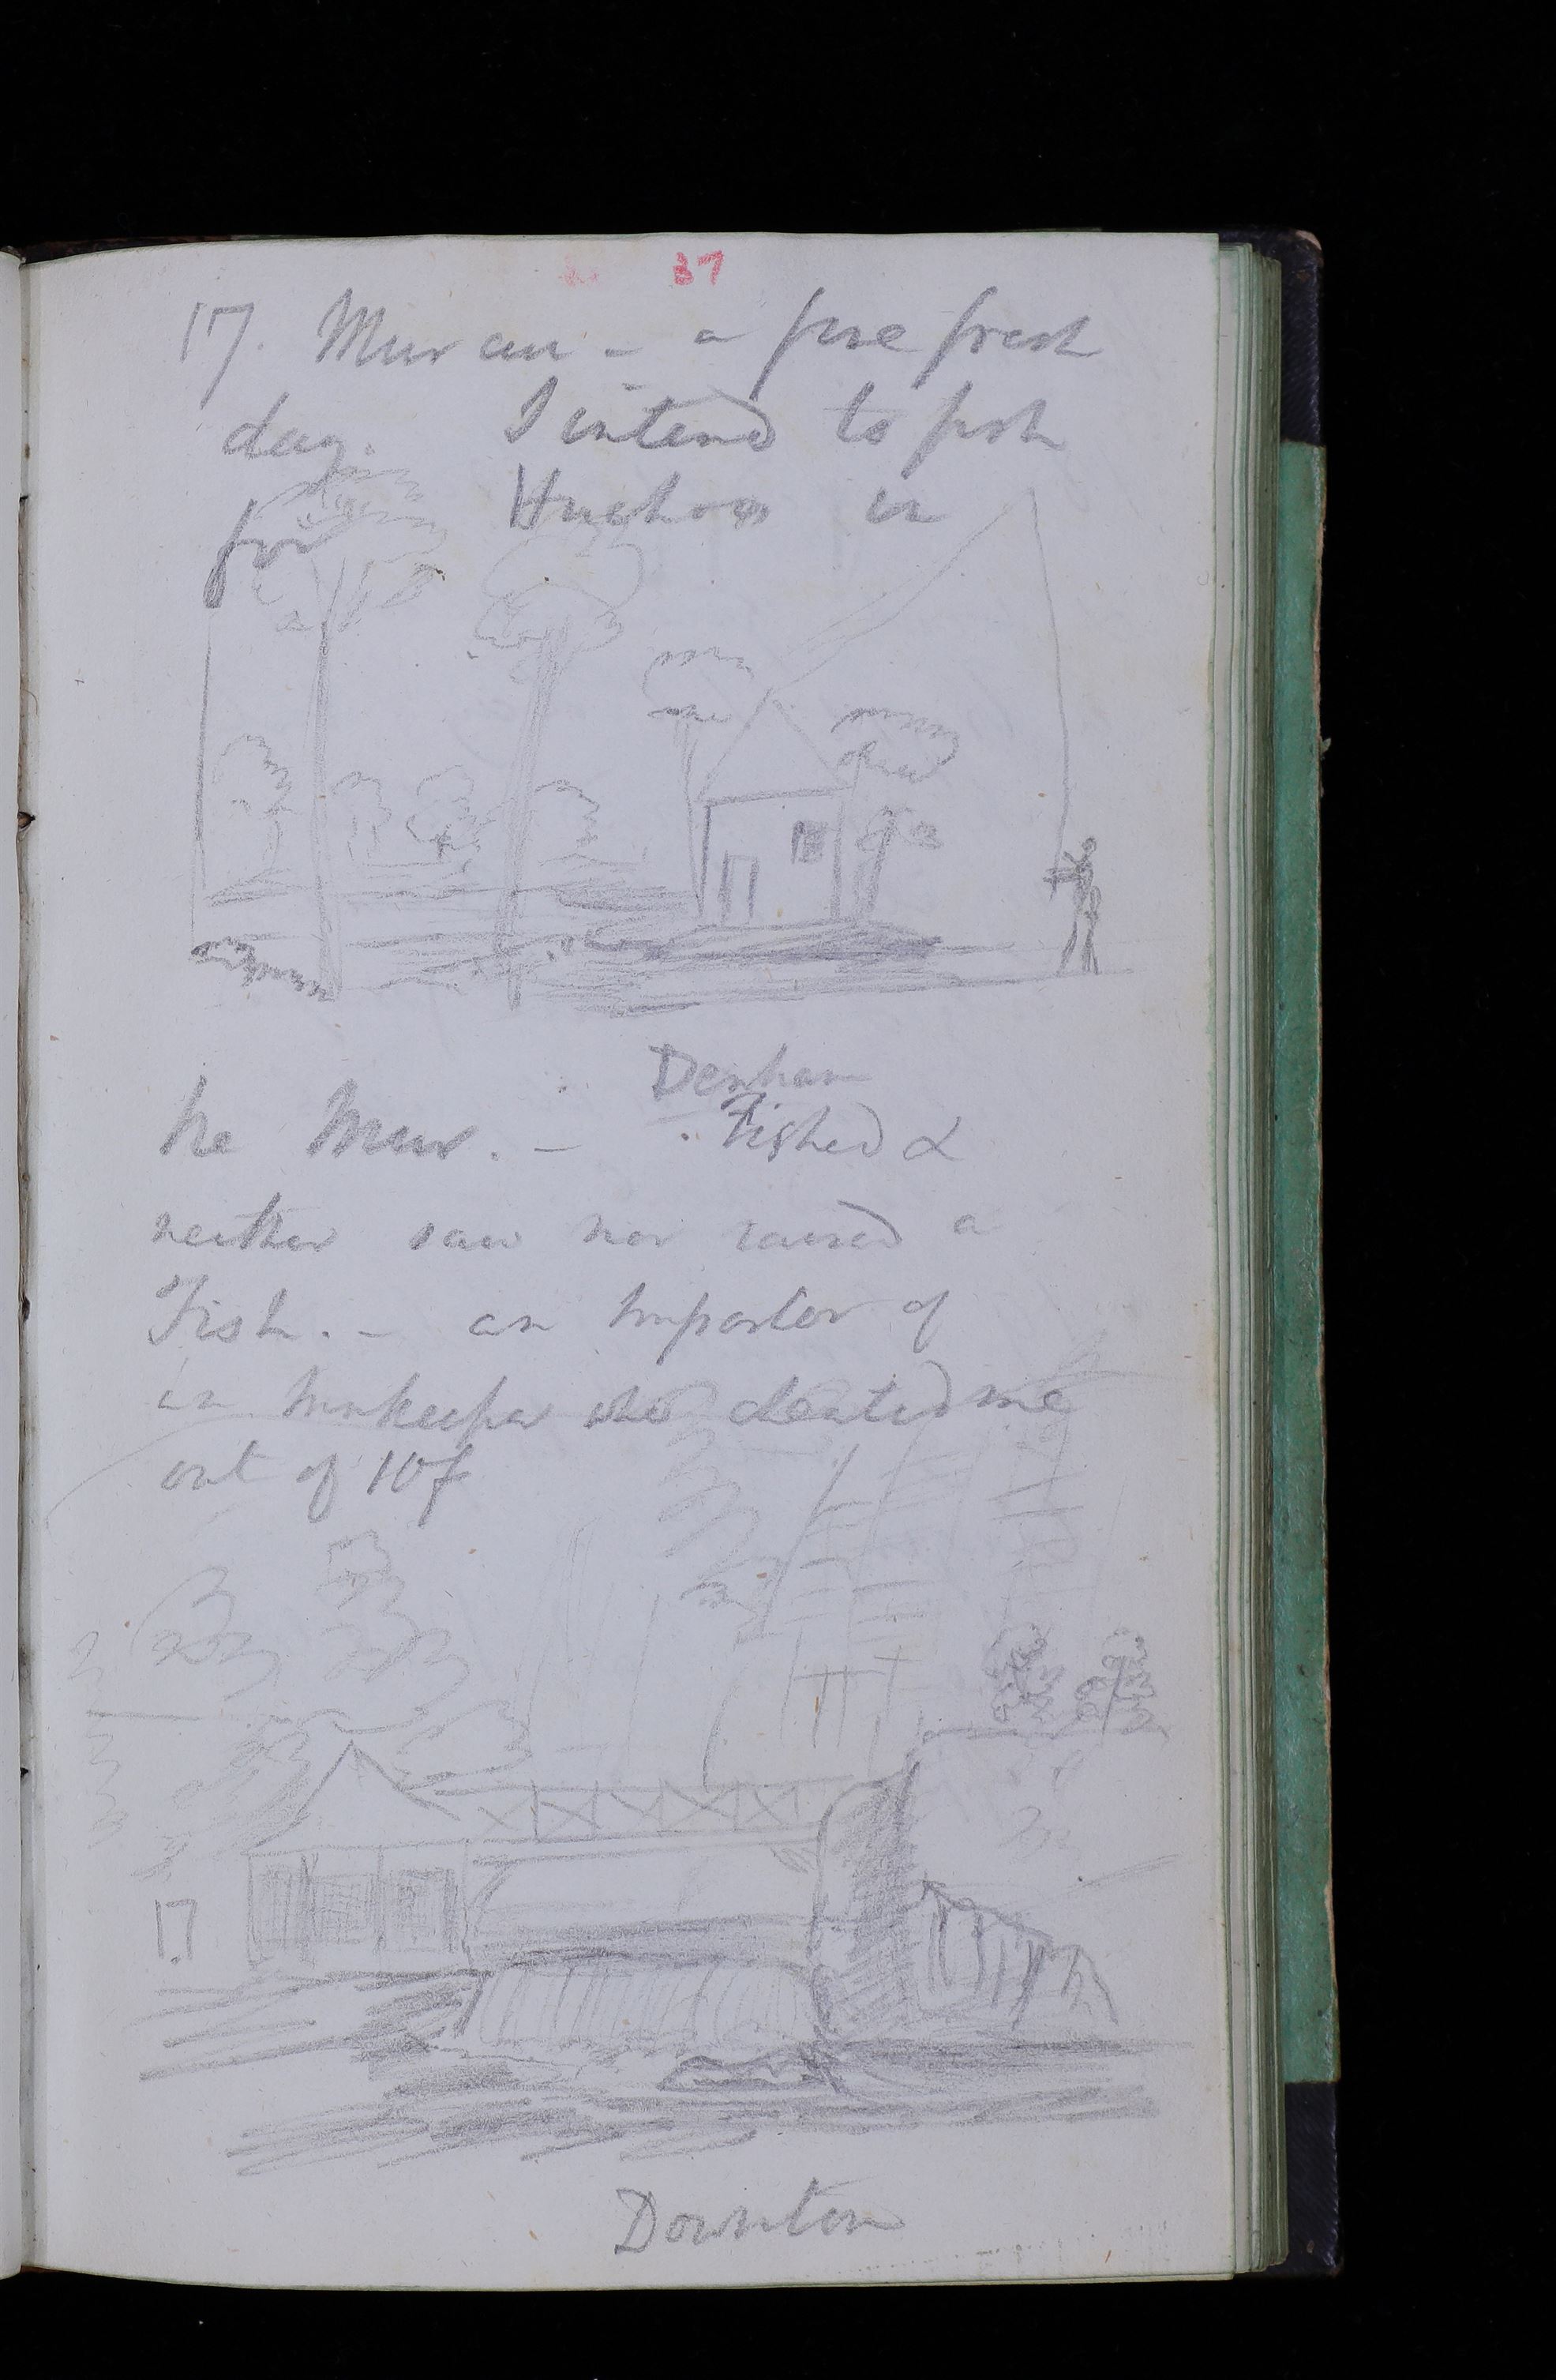 37
17. Murau - a fine fresh
day. I intend to fish
for Huchos in
Denham
he Mur. - Fished &
neither saw nor raised a
Fish. - an Imposter of
an Innkeeper who cheated me
out of 10f
17
Downton